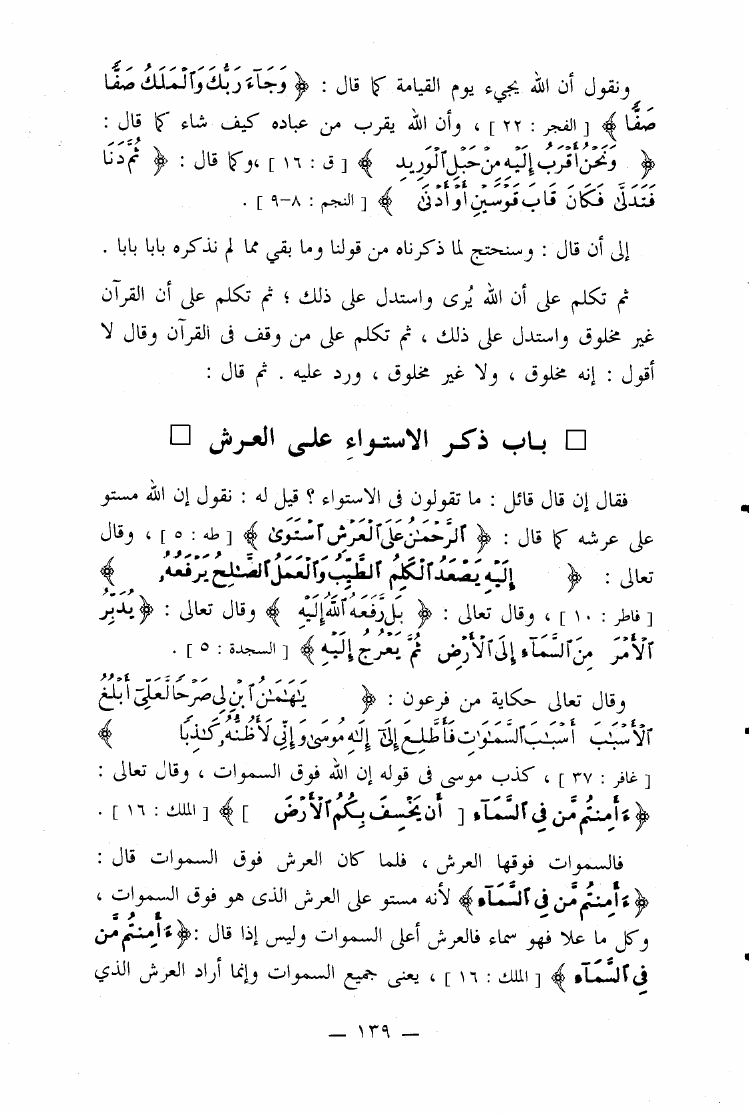 ونقول أن الله يجيء يوم القيامة كما قال : ﴿ وَجَآءَ رَبُّكَ وَٱلْمَلَكُ صَفًّا
صَفًّا ﴾ [ الفجر : ٢٢ ] ، وأن الله يقرب من عباده كيف شاء كما قال :
﴿ وَنَحْنُ أَقْرَبُ إِلَيْهِ مِنْ حَبْلِ ٱلْوَرِيدِ ﴾ [ ق : ١٦ ] ،وكما قال : ﴿ ثُمَّ دَنَا
فَتَدَلَّىٰ فَكَانَ قَابَ قَوْسَيْنِ أَوْ أَدْنَىٰ ﴾ [ النجم : ٨–٩ ] .
إلى أن قال : وسنحتج لما ذكرناه من قولنا وما بقي مما لم نذكره بابا بابا .
ثم تكلم على أن الله يُرى واستدل على ذلك ؛ ثم تكلم على أن القرآن
غير مخلوق واستدل على ذلك ، ثم تكلم على من وقف فى القرآن وقال لا
أقول : إنه مخلوق ، ولا غير مخلوق ، ورد عليه . ثم قال :
□ بـاب ذكـر الاستـواءِ علـى العـرش □
فقال إن قال قائل : ما تقولون فى الاستواء ؟ قيل له : نقول إن الله مستو
على عرشه كما قال : ﴿ ٱلرَّحْمَـٰنُ عَلَى ٱلْعَرْشِ ٱسْتَوَىٰ ﴾ [ طه : ٥ ] ، وقال
تعالى : ﴿ إِلَيْهِ يَصْعَدُ ٱلْكَلِمُ ٱلطَّيِّبُ وَٱلْعَمَلُ ٱلصَّـٰلِحُ يَرْفَعُهُۥ ﴾
[ فاطر : ١٠ ] ، وقال تعالى : ﴿ بَل رَّفَعَهُ ٱللَّهُ إِلَيْهِ ﴾ وقال تعالى : ﴿ يُدَبِّرُ
ٱلْأَمْرَ مِنَ ٱلسَّمَآءِ إِلَى ٱلْأَرْضِ ثُمَّ يَعْرُجُ إِلَيْهِ ﴾ [ السجدة : ٥ ] .
وقال تعالى حكاية من فرعون : ﴿ يَـٰهَـٰمَـٰنُ ٱبْنِ لِى صَرْحًا لَّعَلِّىٓ أَبْلُغُ
ٱلْأَسْبَـٰبَ أَسْبَـٰبَ ٱلسَّمَـٰوَٰتِ فَأَطَّلِعَ إِلَىٰٓ إِلَـٰهِ مُوسَىٰ وَإِنِّى لَأَظُنُّهُۥ كَـٰذِبًا ﴾
[ غافر : ٣٧ ] ، كذب موسى فى قوله إن الله فوق السموات ، وقال تعالى :
﴿ ءَأَمِنتُم مَّن فِى ٱلسَّمَآءِ [ أَن يَخْسِفَ بِكُمُ ٱلْأَرْضَ ] ﴾ [ الملك : ١٦ ] .
فالسموات فوقها العرش ، فلما كان العرش فوق السموات قال :
﴿ ءَأَمِنتُم مَّن فِى ٱلسَّمَآءِ ﴾ لأنه مستو على العرش الذى هو فوق السموات ،
وكل ما علا فهو سماء فالعرش أعلى السموات وليس إذا قال :﴿ ءَأَمِنتُم مَّن
فِى ٱلسَّمَآءِ ﴾ [ الملك : ١٦ ] ، يعنى جميع السموات وإنما أراد العرش الذي
— ١٣٩ —